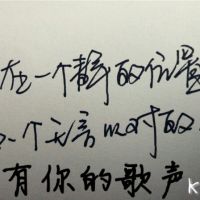 在一个静的位置
一个无言以对的
有你的歌声
K